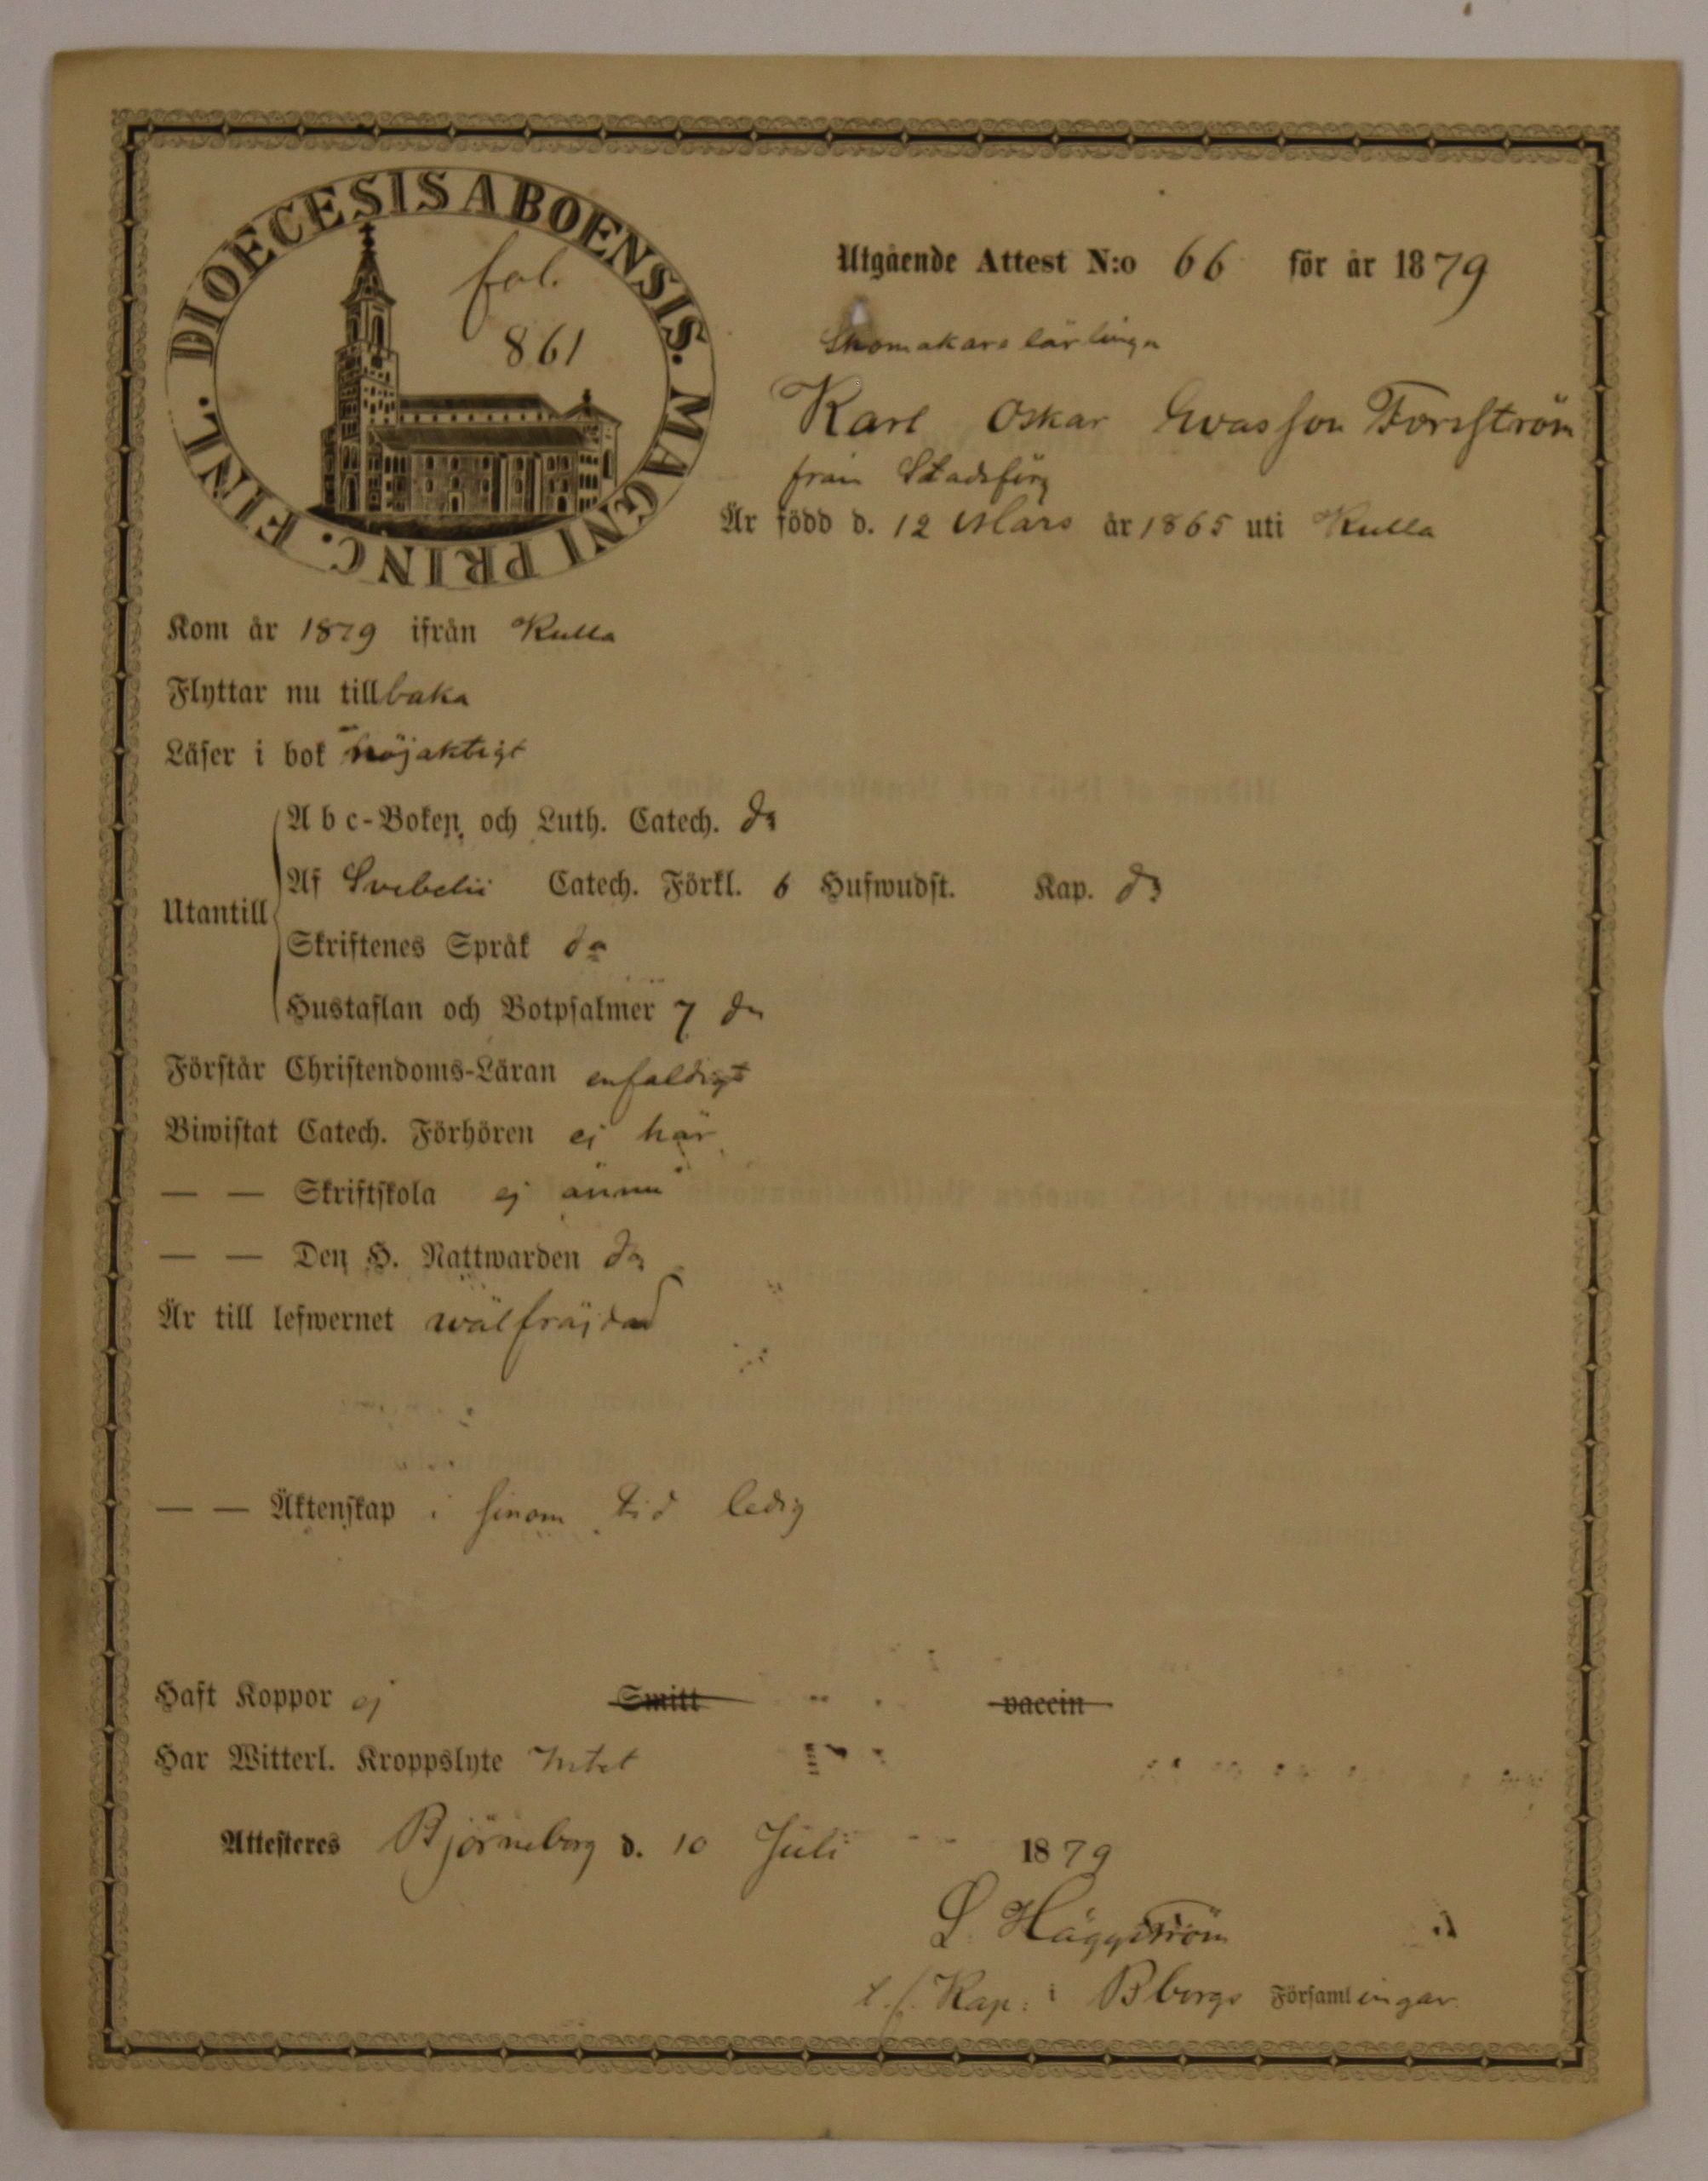 DIOECESIS ABOENSIS. MAGNI PRINC. FINL.
fol.
861
Utgående Attest N:o 66 för år 1879
Skomakare lärlingen
Karl Oskar Evasson Forsström
från Stadsförs
Är född d. 12 Mars år 1865 uti Kulla
Kom år 1879 ifrån Kulla
Flyttar nu tillbaka
Läser i bok nöjaktigt
Utantill
Abc-Boken och Luth. Catech. do
Af Svebelii Catech. Förkl. 6 Hufwudst. Kap. do
Skriftenes Språk do
Hustaflan och Botpsalmer 7 do
Förstår Christendoms-Läran enfaldigt
Biwistat Catech. Förhören ej här
— — Skriftskola ej ännu
— — Den H. Nattwarden do
Är till lefwernet wälfräjdad
— — Äktenskap i sinom tid ledig
Haft Koppor ej Smitt vaccin
Har Witterl. Kroppslyte Intet
Attesteres Björneborg d. 10 Juli 1879
L. Häggström
Kap. i Bborgs Församlingar